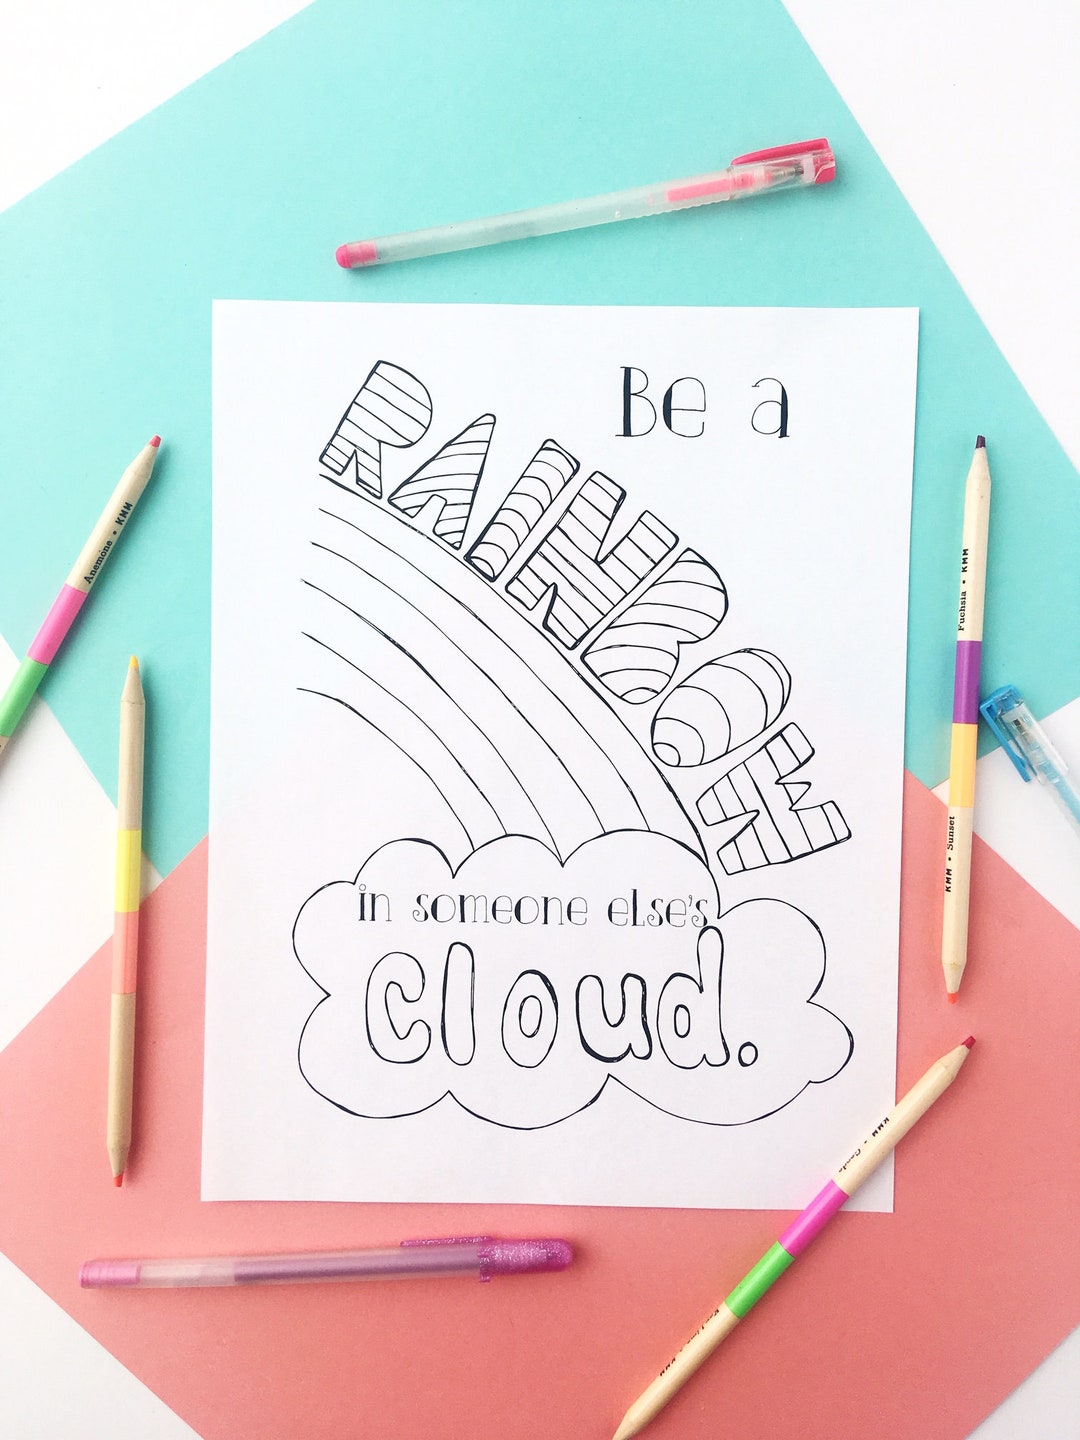 Be a
RAINBOW
in someone else's
Cloud.
Anemone • KMM
Fuchsia • KMM
KMM • Sunset
KMM
KMM